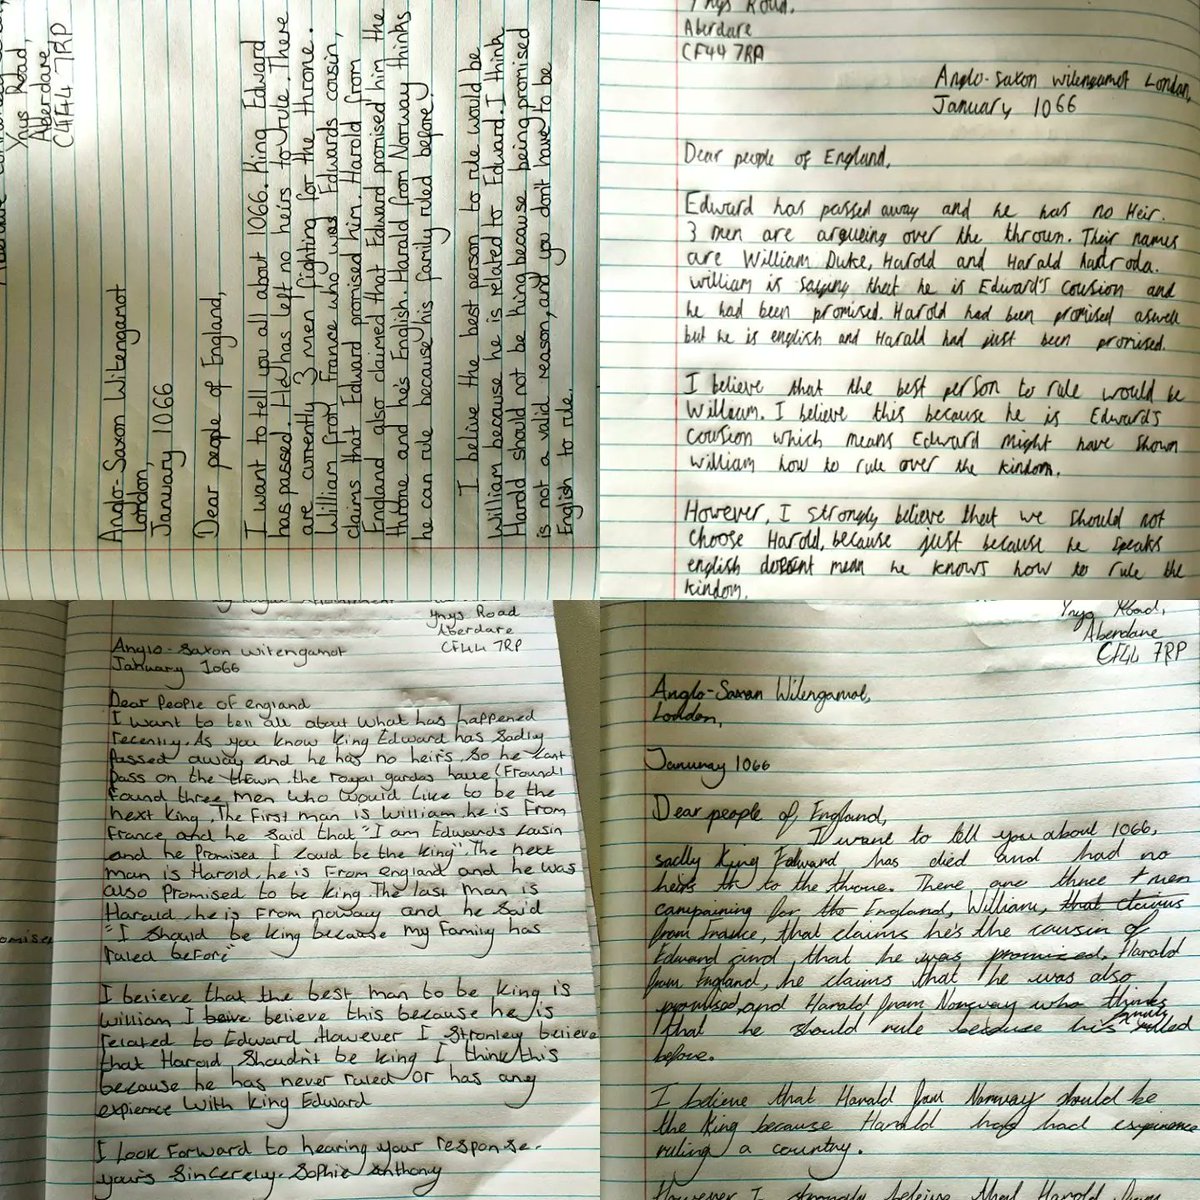 Ynys Road,
Aberdare
CF44 7RP
Anglo-Saxon Witengamot
London,
January 1066
Dear people of England,
I want to tell you all about 1066. King Edward
has passed. He has left no heirs to rule. There
are currently 3 men fighting for the throne.
William from France who was Edwards cousin,
claims that Edward promised him. Harold from
England also claimed that Edward promised him the
throne and he's English. Harald from Norway thinks
he can rule because his family ruled before
I belive the best person to rule would be
William because he is related to Edward. I think
Harold should not be king because being promised
is not a valid reason, and you don't have to be
English to rule.
Ynys Road,
Aberdare
CF44 7RP
Anglo-Saxon witengamot London,
January 1066
Dear people of England,
Edward has passed away and he has no Heir.
3 men are argueing over the thrown. Their names
are William Duke, Harold and Harald hadroda.
william is saying that he is Edward's Cousion and
he had been promised. Harold had been promised aswell
but he is english and Harald had just been promised.
I believe that the best person to rule would be
William. I believe this because he is Edward's
cousion which means Edward might have shown
william how to rule over the kindom.
However, I strongly believe that we should not
choose Harold, because just because he speaks
english doesent mean he knows how to rule the
kindom.
Ynys Road
Aberdare
CF44 7RP
Anglo-Saxon witengamot
January 1066
Dear People of england
I want to tell all about what has happened
recently. As you know King Edward has Sadly
Passed away and he has no heirs. So he cant
pass on the thrown the royal gardas have (Found)
Found three men who would like to be the
next king. The First man is William he is From
France and he Said that "I am Edwards cousin
and he Promised I could be the king". The next
man is Harold he is From england and he was
also Promised to be king The last man is
Harald he is From noway and he Said
"I Should be king because my Family has
ruled before"
I believe that the best man to be king is
William I believe this because he is
related to Edward However I Stronley believe
that Harold Shoudn't be king I think this
because he has never ruled or has any
expiernce with king Edward
I Look Forward to hearing your response.
yours Sincerely. Sophie Anthony
Ynys Road,
Aberdare
CF44 7RP
Anglo-Saxon Witengamot,
London,
Janunay 1066
Dear people of England,
I want to tell you about 1066,
sadly King Edward has died and had no
heirs to the throne. There are three men
campaining for the England, William, that claims
from France, that claims he's the causin of
Edward and that he was promised, Harold
from England, he claims that he was also
promised, and Harald from Norway who thinks
that he should rule because his family ruled
before.
I believe that Harald from Norway should be
the king because Harald has had experience
ruling a country.
However I strongly beleive that Harold from